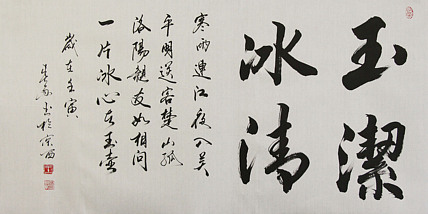 玉潔
冰清
寒雨連江夜入吴
平明送客楚山孤
洛陽親友如相问
一片冰心在玉壺
歲在壬寅